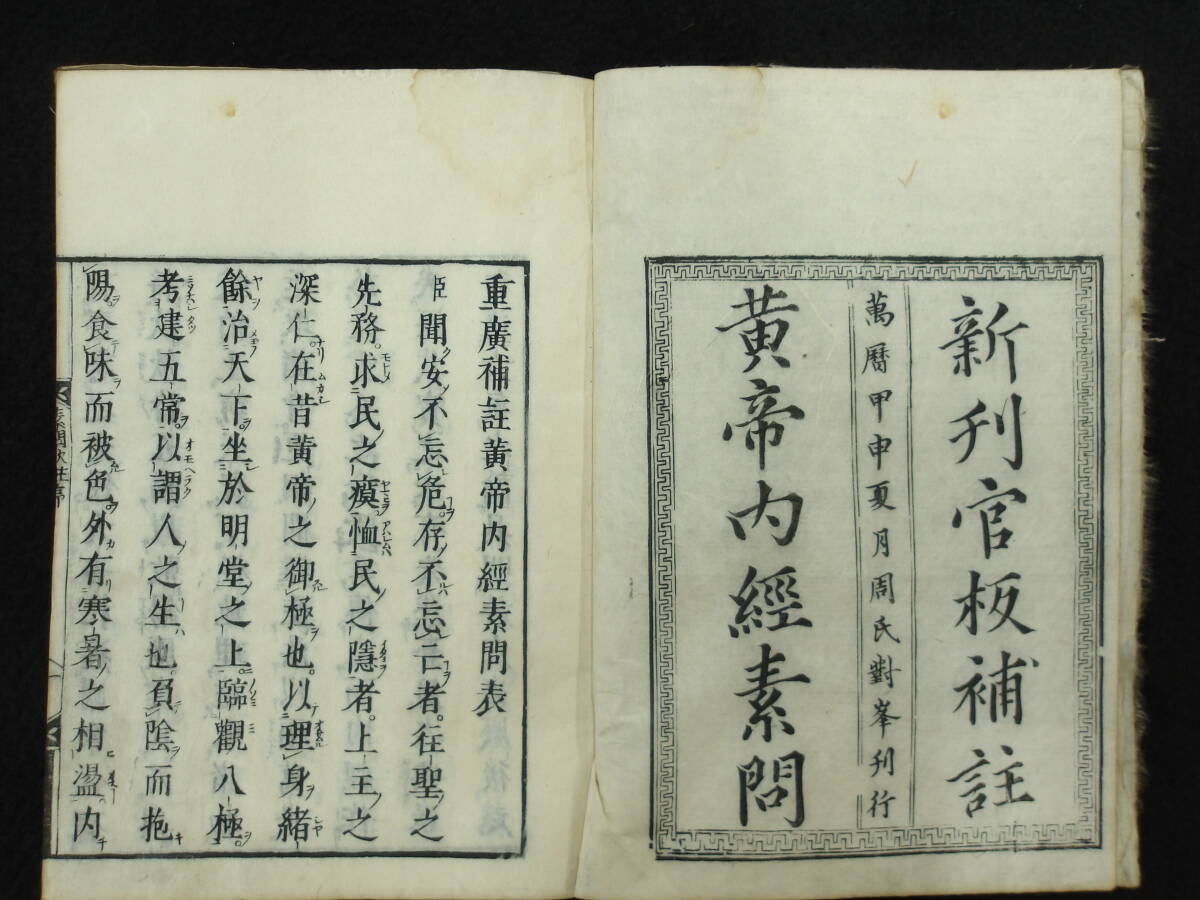 新刊官板補註
萬曆甲申夏月周氏對峯刋行
黃帝內經素問
重廣補註黃帝內經素問表
臣聞安不忘危存不忘亡者往聖之
先務求民之瘼恤民之隱者上主之
深仁在昔黃帝之御極也以理身緒
餘治天下坐於明堂之上臨觀八極
考建五常以謂人之生也負陰而抱
陽食味而被色外有寒暑之相盪內